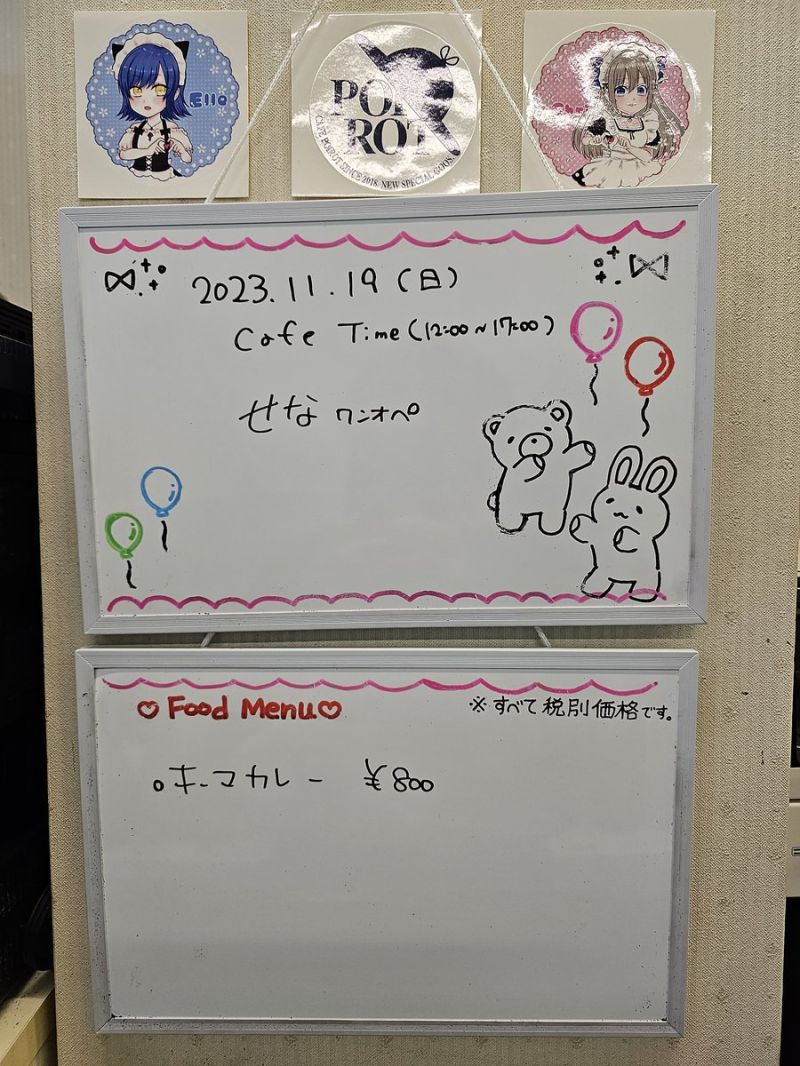 Ello
POI
ROT
CAFE POIROT SINCE 2018. NEW SPECIAL GOODS
2023.11.19(日)
Cafe Time(12:00~17:00)
せな ワンオペ
♡ Food Menu ♡
※すべて税別価格です。
○キーマカレー ¥800